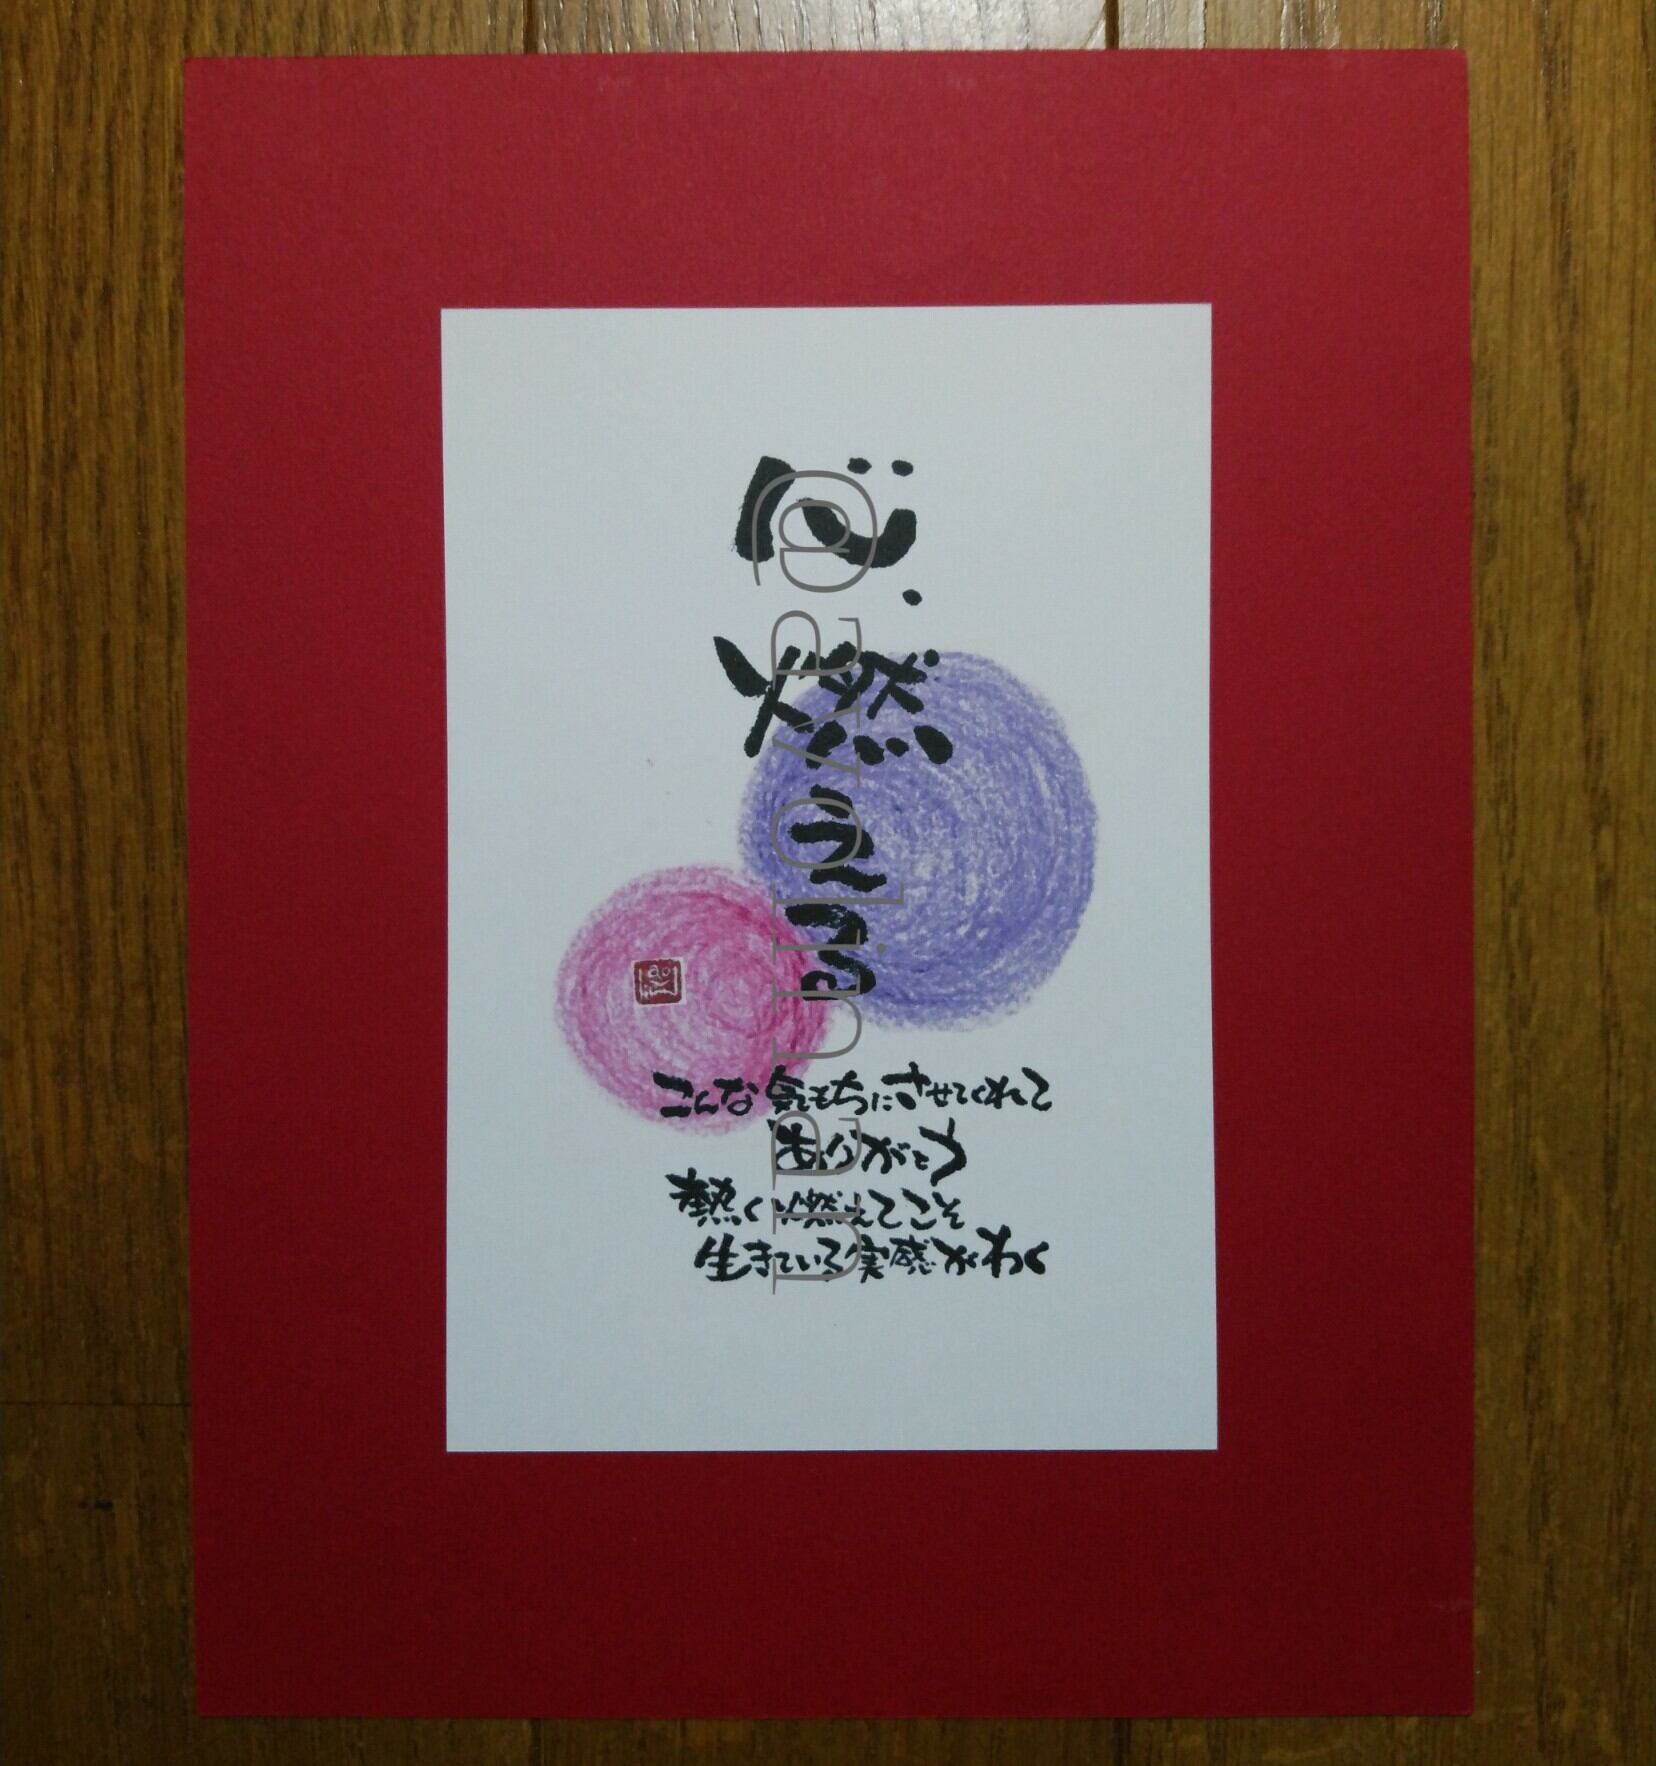 心、燃える
こんな気もちにさせてくれて
ありがとう
熱く燃えてこそ
生きている実感がわく